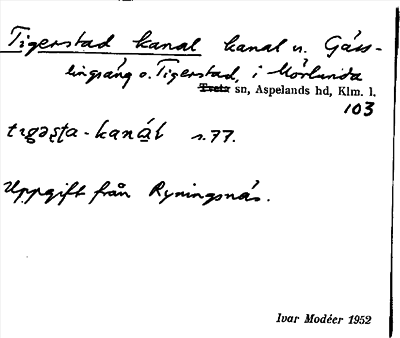 Tigerstad kanal kanal n. Gäss-
lingsäng o. Tigerstad, i Mörlunda
sn, Aspelands hd, Klm. l.
103
tɪgəʂʈa-kanɑ́l s.77.
Uppgift från Ryningsnäs.
Ivar Modéer 1952